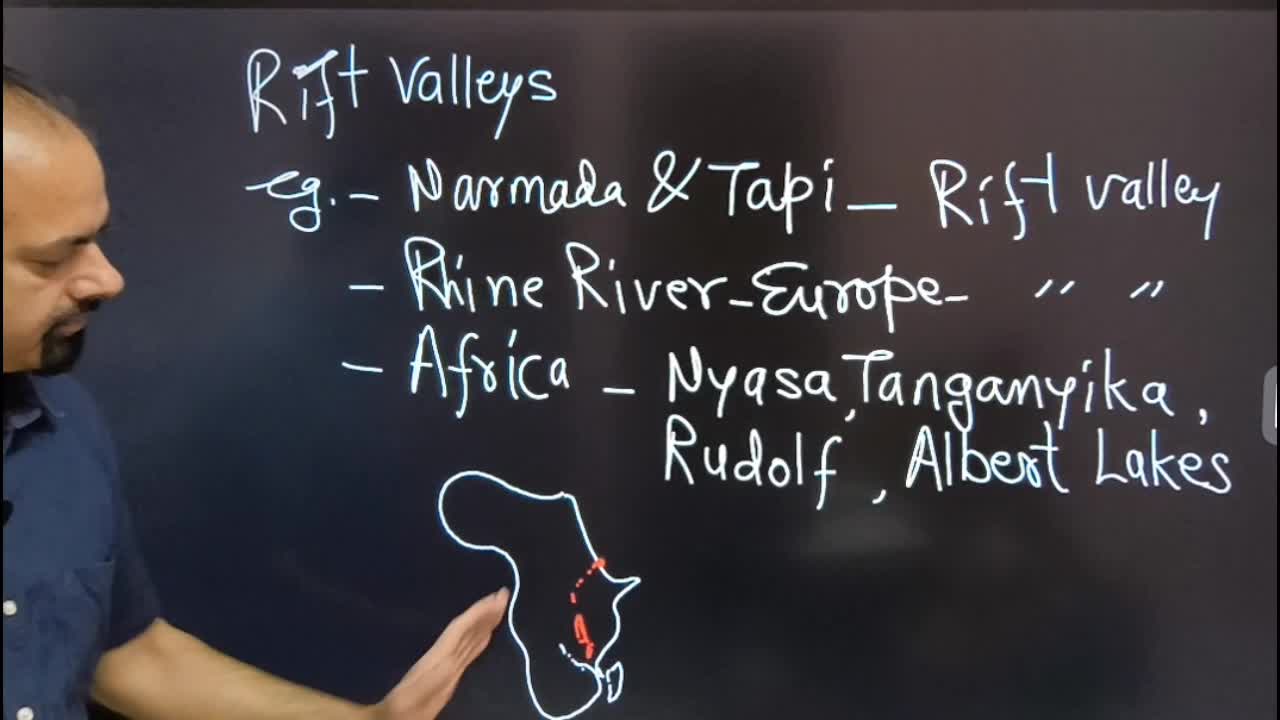 Rift Valleys
eg. - Narmada & Tapi - Rift valley
- Rhine River - Europe - " "
- Africa - Nyasa, Tanganyika,
Rudolf, Albert Lakes